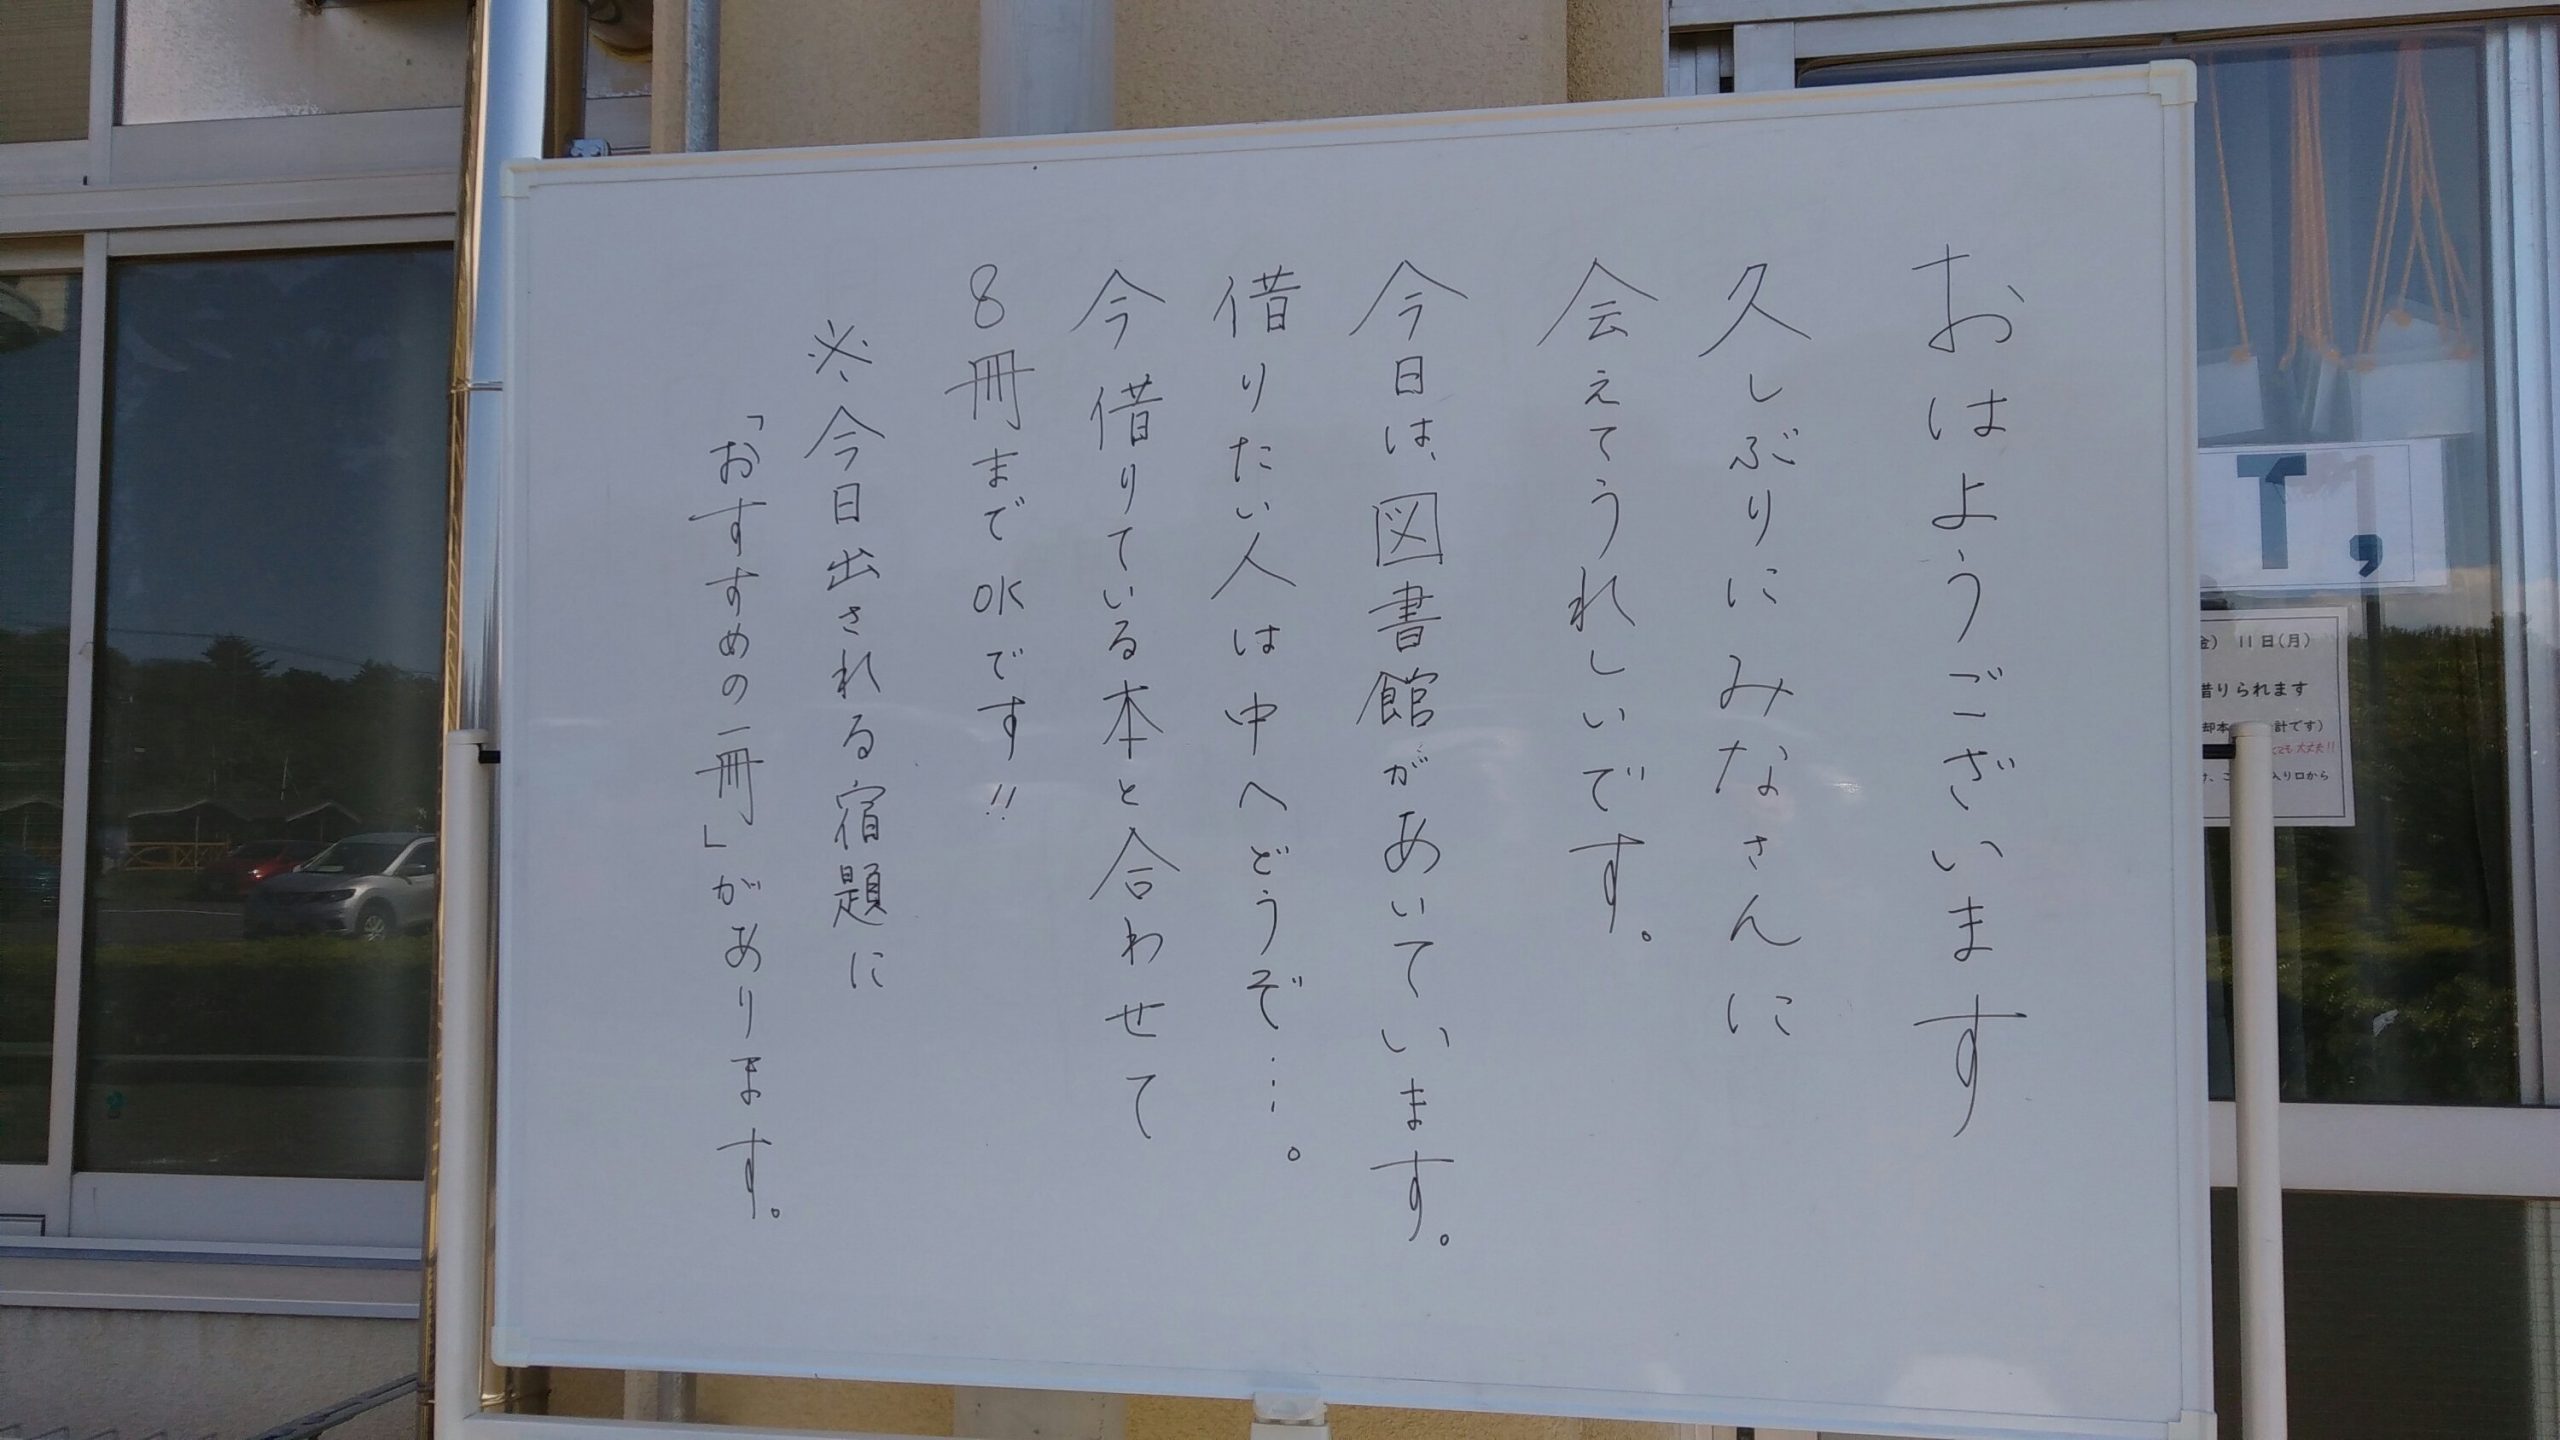 おはようございます
久しぶりにみなさんに
会えてうれしいです。
今日は、図書館があいています。
借りたい人は中へどうぞ…。
今借りている本と合わせて
8冊までOKです!!
※今日出される宿題に
「おすすめの一冊」があります。
金) 11日(月)
借りられます
却本 計です)
ても大丈夫!!
入り口から